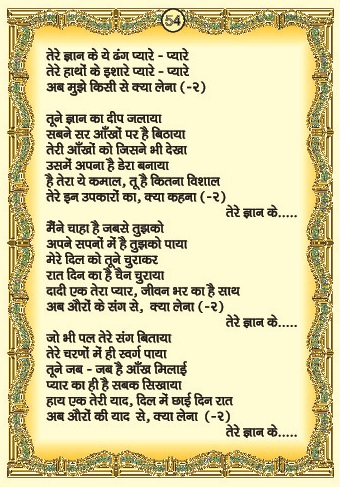 54
तेरे ज्ञान के ये ढंग प्यारे - प्यारे
तेरे हाथों के इशारे प्यारे - प्यारे
अब मुझे किसी से क्या लेना (-२)
तूने ज्ञान का दीप जलाया
सबने सर आँखों पर है बिठाया
तेरी आँखों को जिसने भी देखा
उसमें अपना है डेरा बनाया
है तेरा ये कमाल, तू है कितना विशाल
तेरे इन उपकारों का, क्या कहना (-२)
तेरे ज्ञान के.....
मैंने चाहा है जबसे तुझको
अपने सपनों में है तुझको पाया
मेरे दिल को तूने चुराकर
रात दिन का है चैन चुराया
दादी एक तेरा प्यार, जीवन भर का है साथ
अब औरों के संग से, क्या लेना (-२)
तेरे ज्ञान के.....
जो भी पल तेरे संग बिताया
तेरे चरणों में ही स्वर्ग पाया
तूने जब - जब है आँख मिलाई
प्यार का ही है सबक सिखाया
हाय एक तेरी याद, दिल में छाई दिन रात
अब औरों की याद से, क्या लेना (-२)
तेरे ज्ञान के.....